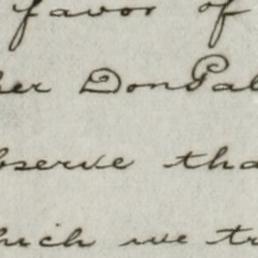 favor of
her DonGal
bserve tha
hich we tr